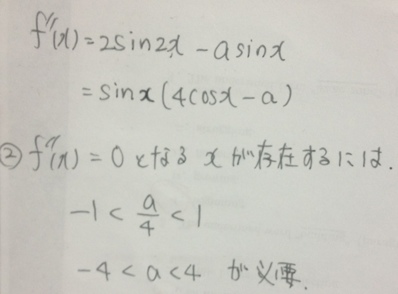 f''(x)=2sin2x - a sinx
= sinx (4cosx - a)
② f''(x)=0 となる x が存在するには.
-1 < a/4 < 1
-4 < a < 4 が必要.